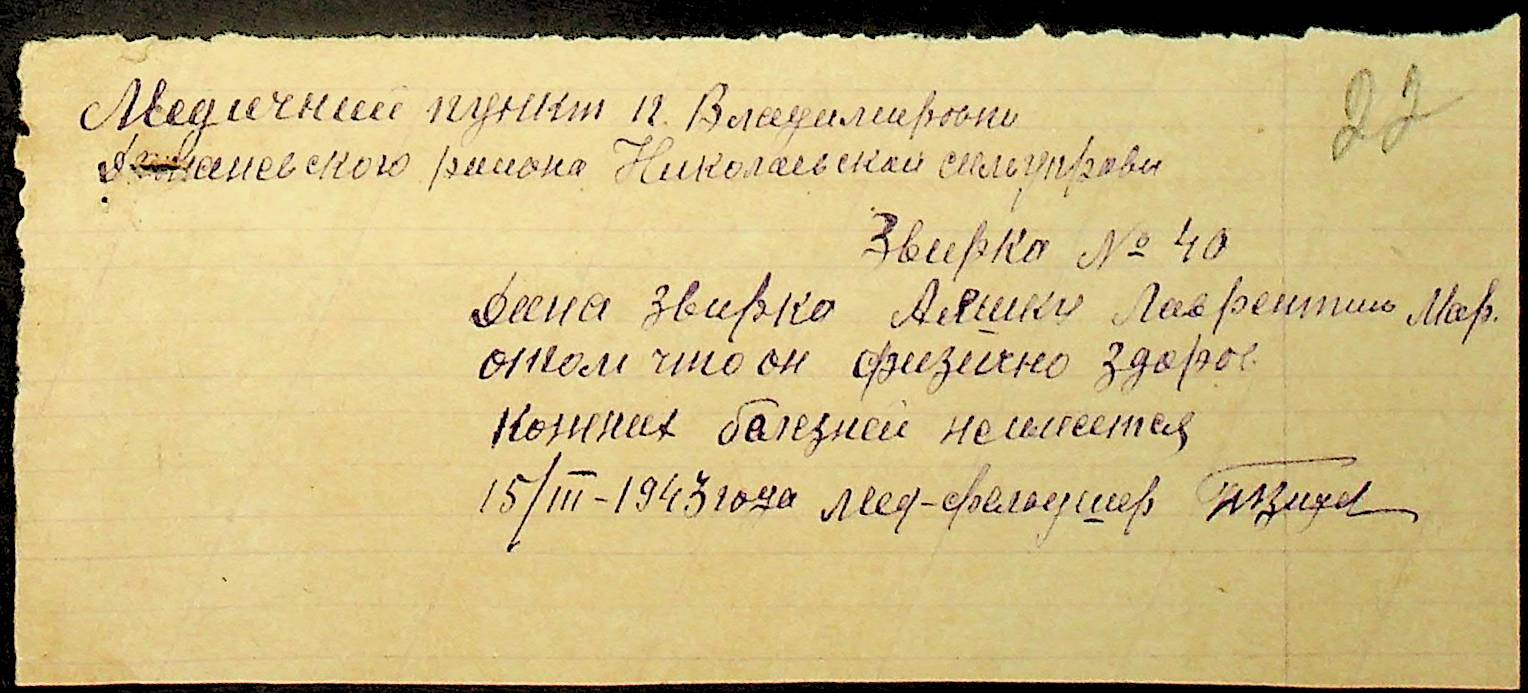 22
Медичний пункт п. Владимировки
района Николаевской сельуправы
Звирка № 40
Дана Звирка Ляшку Лаврентию Мар.
отом что он физично здоров
Кожних болезней неимеется
15/III-1943 года мед-фельдшер